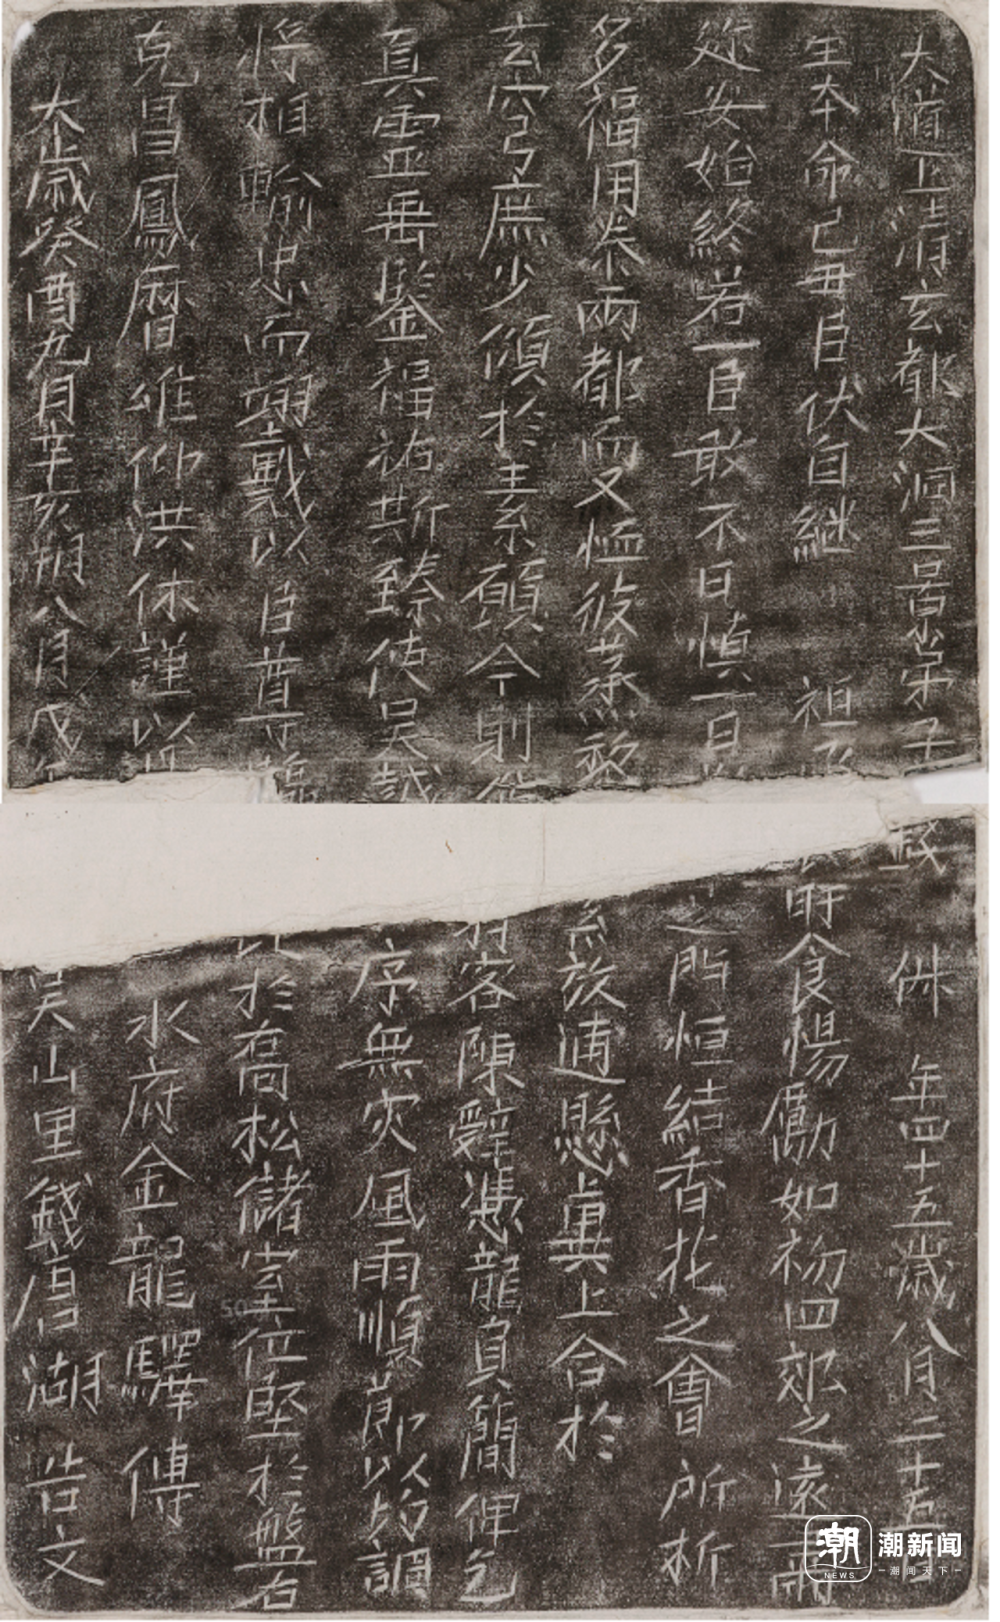 大道上清玄都大洞三景弟子 俶 年四十五歲八月二十五日
生本命己丑臣伏自繼 祖 旰食惕勵如初四郊之遠
安始終若一臣敢不日慎一日 之門恒結香花之會 所祈
多福用 兩都而又恤彼蒸黎 放逋懸冀上合於
玄穹庶少傾於素願今則 羽客陳辭憑龍負簡俾乞
真靈垂鑒福祐斯臻使吳越 序無灾風雨順節以 調
將相輸忠而翊戴以臣尊 於喬松儲室位堅於盤石
克昌鳳曆唯仰洪休謹以 水府金龍驛傳
太歲癸酉九月辛亥朔八月戊 吳山里錢唐湖 告文
潮 NEWS 潮新聞
潮闻天下